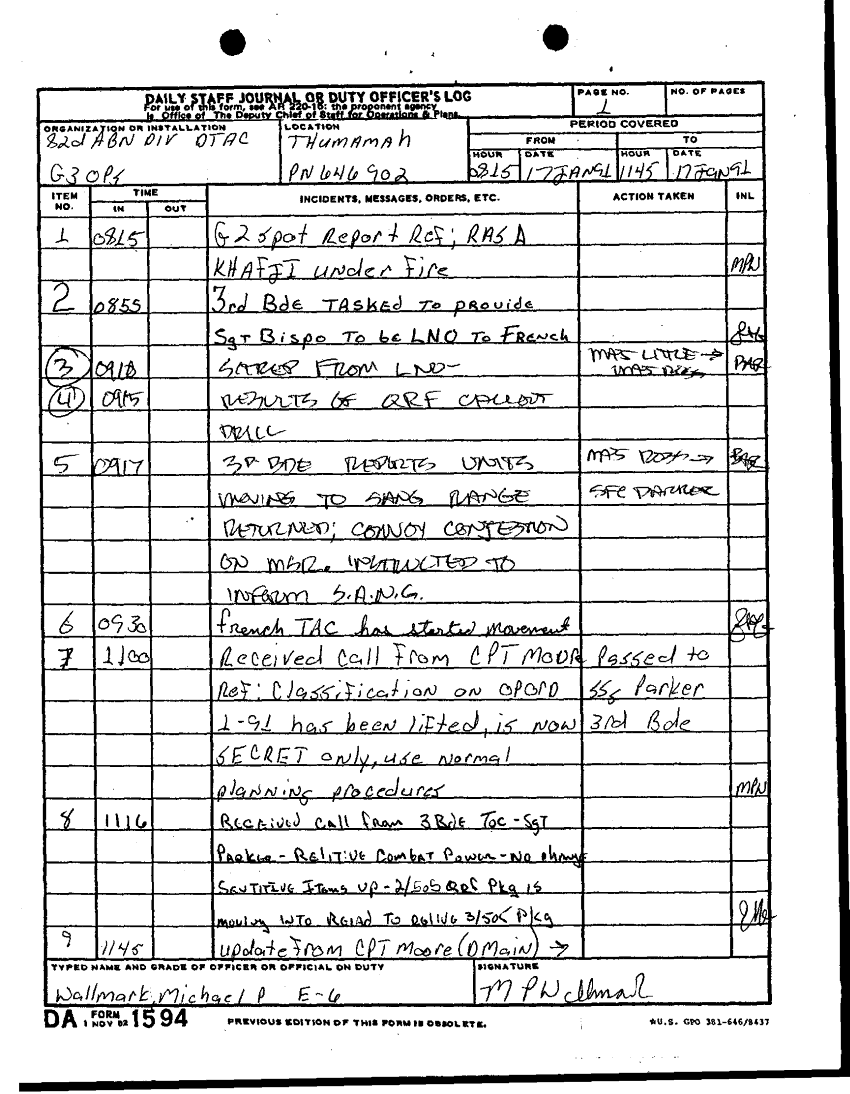 DAILY STAFF JOURNAL OR DUTY OFFICER'S LOG
For use of this form, see AR 220-15; the proponent agency
is Office of The Deputy Chief of Staff for Operations & Plans.
PAGE NO.
1
NO. OF PAGES
ORGANIZATION OR INSTALLATION
82d ABN DIV DTAC
G3 OPS
LOCATION
THUMAMAH
PN 646 902
PERIOD COVERED
FROM TO
HOUR DATE HOUR DATE
0815 17JAN91 1145 17JAN91
ITEM NO. TIME IN OUT INCIDENTS, MESSAGES, ORDERS, ETC. ACTION TAKEN INL
1 0815 G2 spot Report Ref; RAS A
KHAFJI under Fire MPW
2 0855 3rd Bde TASKED TO PROVIDE
SgT Bispo To be LNO To FRENCH
3 0910 SITREP FROM LNO- MAJ LITTLE →
4 0915 RESULTS OF QRF CALLOUT
DRILL
5 0917 3D BDE REPORTS UNITS MAJ →
MOVING TO SANG RANGE SFC PARKER
RETURNED; CONVOY CONGESTION
ON MSR. INSTRUCTED TO
INFORM S.A.N.G.
6 0930 french TAC has started movement
7 1100 Received call From CPT MOOR Passed to
Ref: Classification on OPORD SSG Parker
1-91 has been lifted, is now 3rd Bde
SECRET only, use normal
planning procedures MPW
8 1116 RECEIVED CALL from 3Bde TOC - SgT
Parker - RELITIVE COMBAT POWER - NO change
SENTITIVE ITEMS UP - 2/505 QRF Pkg is
moving INTO RGIAD TO RELIVE 3/505 Pkg
9 1145 update From CPT Moore (DMain) →
TYPED NAME AND GRADE OF OFFICER OR OFFICIAL ON DUTY
Wallmark, Michael P E-6
SIGNATURE
M P Wallmark
DA FORM 1 NOV 62 1594
PREVIOUS EDITION OF THIS FORM IS OBSOLETE.
★U.S. GPO 381-646/8437